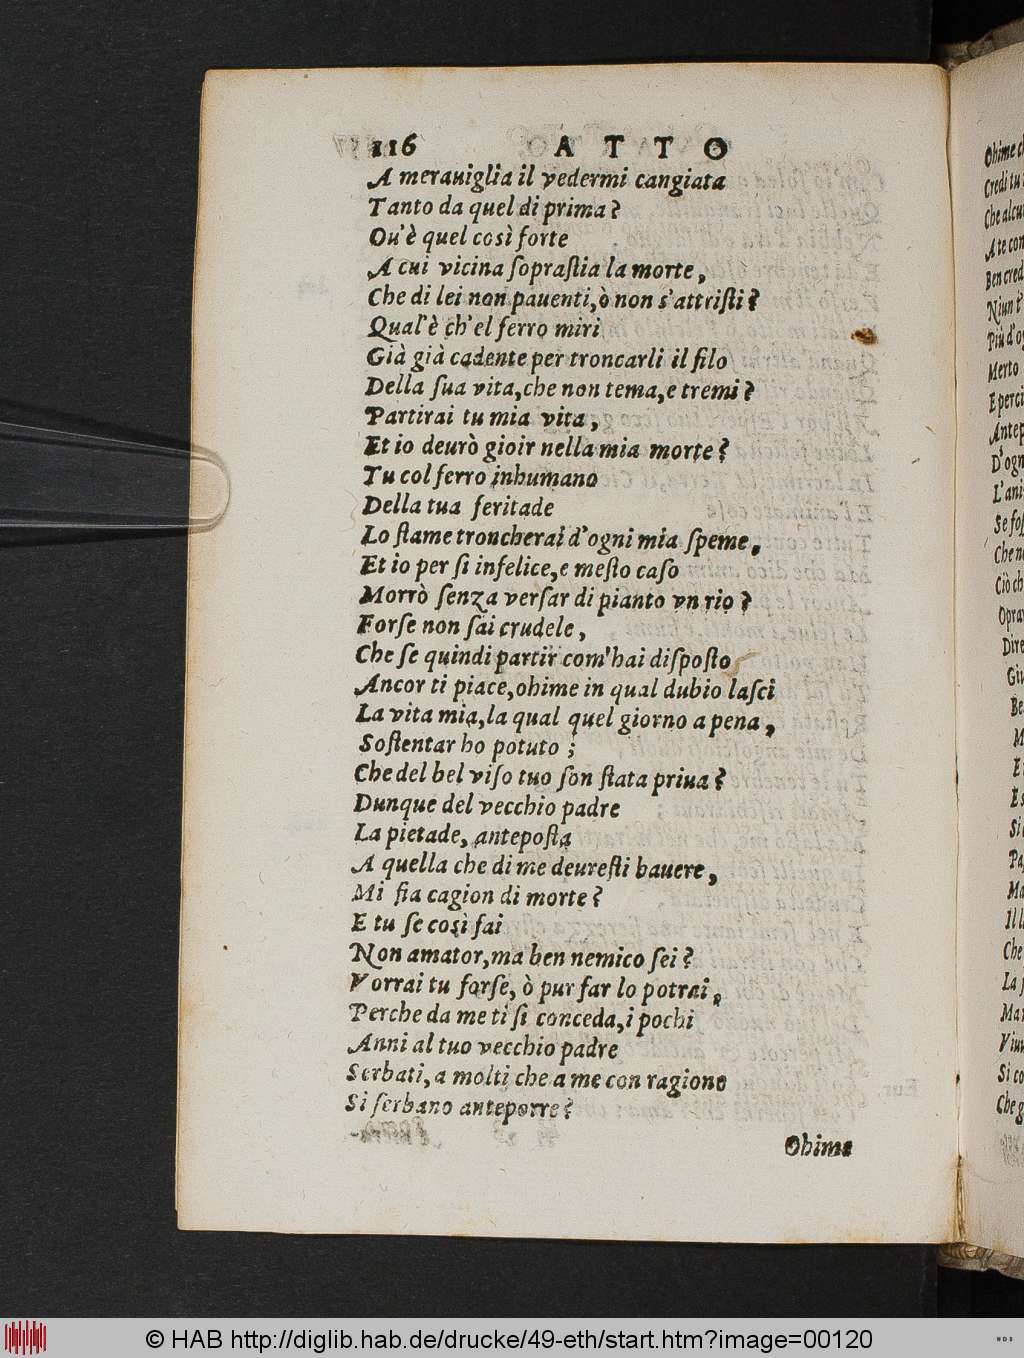 116 ATTO
A merauiglia il vedermi cangiata
Tanto da quel di prima?
Ou'è quel così forte
A cui vicina ſopraſtia la morte,
Che di lei non pauenti, ò non s'attriſti?
Qual'è ch'el ferro miri
Già già cadente per troncarli il filo
Della ſua vita, che non tema, e tremi?
Partirai tu mia vita,
Et io deurò gioir nella mia morte?
Tu col ferro inhumano
Della tua feritade
Lo ſtame troncherai d'ogni mia ſpeme,
Et io per ſi infelice, e meſto caſo
Morrò ſenza verſar di pianto vn rio?
Forſe non ſai crudele,
Che ſe quindi partir com'hai diſpoſto
Ancor ti piace, ohime in qual dubio laſci
La vita mia, la qual quel giorno a pena,
Soſtentar ho potuto;
Che del bel viſo tuo ſon ſtata priua?
Dunque del vecchio padre
La pietade, antepoſta
A quella che di me deureſti hauere,
Mi fia cagion di morte?
E tu ſe così fai
Non amator, ma ben nemico ſei?
Vorrai tu forſe, ò pur far lo potrai,
Perche da me ti ſi conceda, i pochi
Anni al tuo vecchio padre
Serbati, a molti che a me con ragione
Si ſerbano anteporre?
Ohime
Ohime
Credi tu
Che alcu
A te con
Ben cred
Niun t'
Più d'og
Merto
E perci
Antep
D'ogn
L'ani
Se foſ
Che no
Ciò ch
Opra
Dire
Giu
Be
M
E
Es
Si
Pa
Ma
Il l
Che
La
Mar
Viu
Si co
Che g
© HAB http://diglib.hab.de/drucke/49-eth/start.htm?image=00120